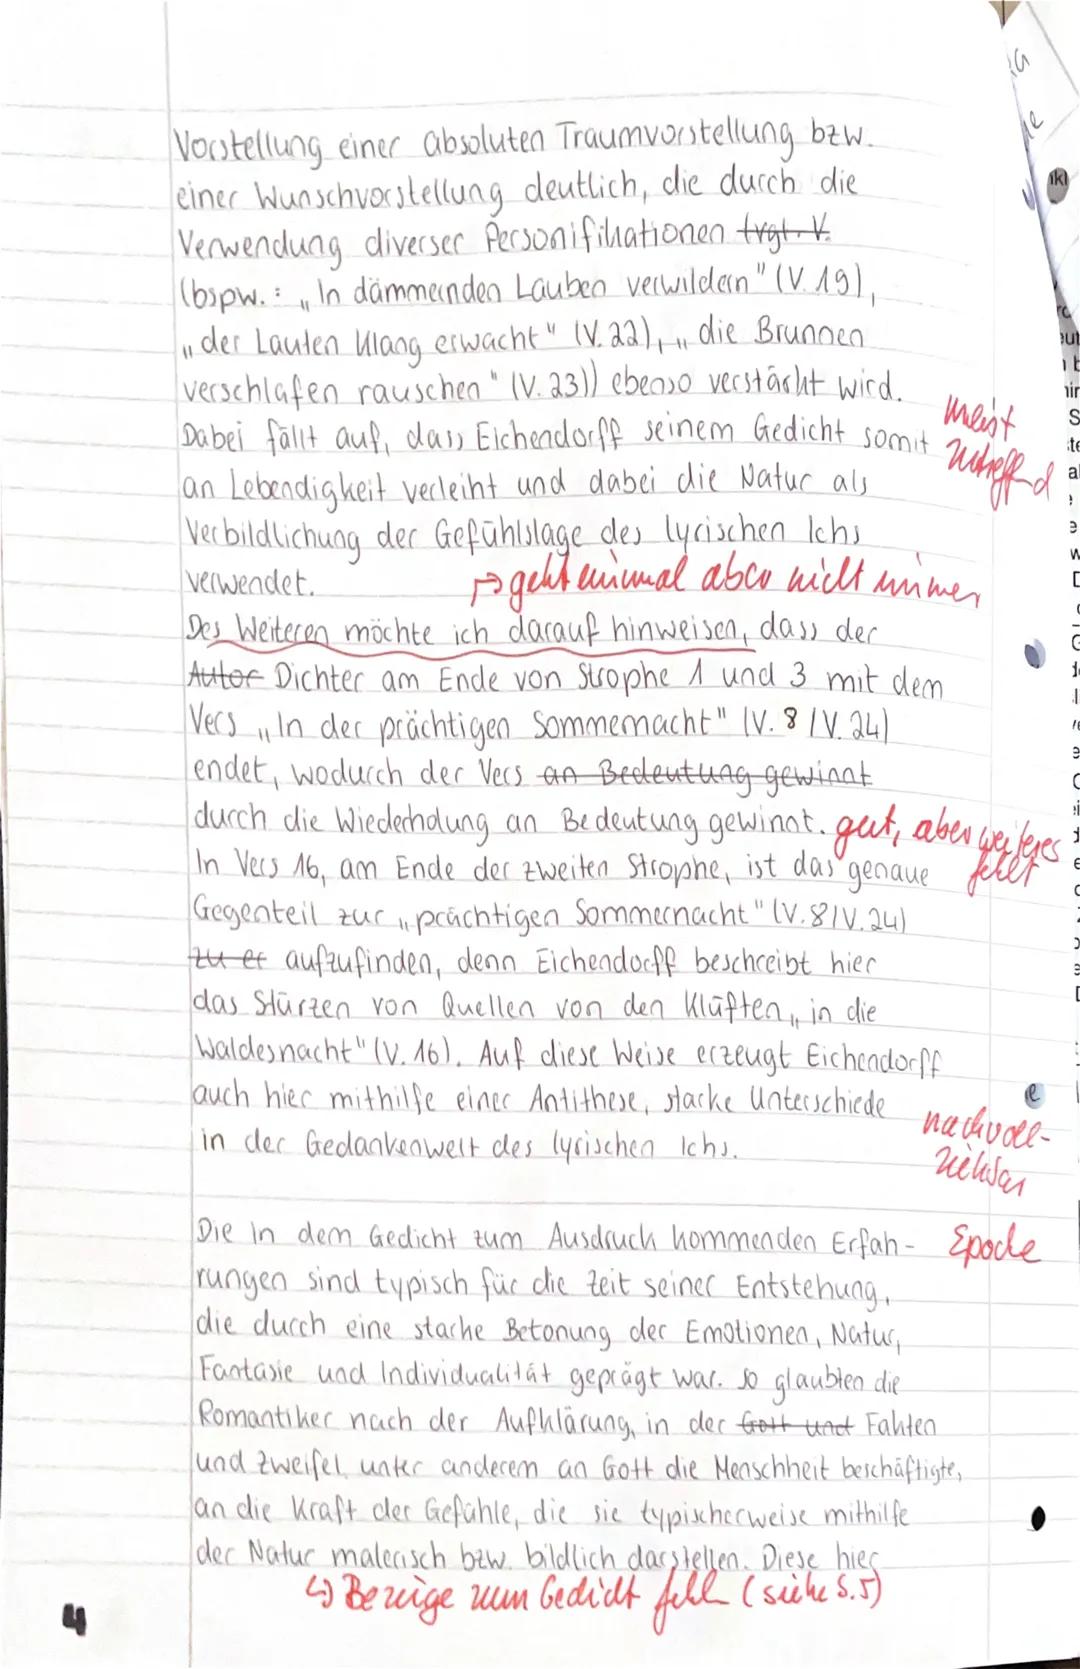 Vorstellung einer absoluten Traumvorstellung bzw.
einer Wunschvorstellung deutlich, die durch die
Verwendung diverser Personifikationen trgt. V.
(bspw.: „In dämmernden Lauben verwildern" (V. 19),
„der Lauten Klang erwacht" (V. 22), „die Brunnen
verschlafen rauschen" (V. 23)) ebenso verstärkt wird.
Dabei fällt auf, dass Eichendorff seinem Gedicht somit
meist zutreffend
an Lebendigkeit verleiht und dabei die Natur als
Verbildlichung der Gefühlslage des lyrischen Ichs
verwendet.
↳ geht einmal aber nicht immer
Des Weiteren möchte ich darauf hinweisen, dass der
Autor Dichter am Ende von Strophe 1 und 3 mit dem
Vers „In der prächtigen Sommernacht" (V. 8 / V. 24)
endet, wodurch der Vers an Bedeutung gewinnt
durch die Wiederholung an Bedeutung gewinnt.
gut, aber weiteres fehlt
In Vers 16, am Ende der zweiten Strophe, ist das genaue
Gegenteil zur „prächtigen Sommernacht" (V. 8 / V. 24)
zu er aufzufinden, denn Eichendorff beschreibt hier
das Stürzen von Quellen von den Klüften „in die
Waldesnacht" (V. 16). Auf diese Weise erzeugt Eichendorff
auch hier mithilfe einer Antithese, starke Unterschiede
in der Gedankenwelt des lyrischen Ichs.
nachvoll-
ziehbar
Die in dem Gedicht zum Ausdruck kommenden Erfah-
Epoche
rungen sind typisch für die Zeit seiner Entstehung,
die durch eine starke Betonung der Emotionen, Natur,
Fantasie und Individualität geprägt war. So glaubten die
Romantiker nach der Aufklärung, in der Gott und Fakten
und Zweifel unter anderem an Gott die Menschheit beschäftigte,
an die Kraft der Gefühle, die sie typischerweise mithilfe
der Natur malerisch bzw. bildlich darstellen. Diese hier
↳ Bezüge zum Gedicht fehl (siehe S. 5)
4